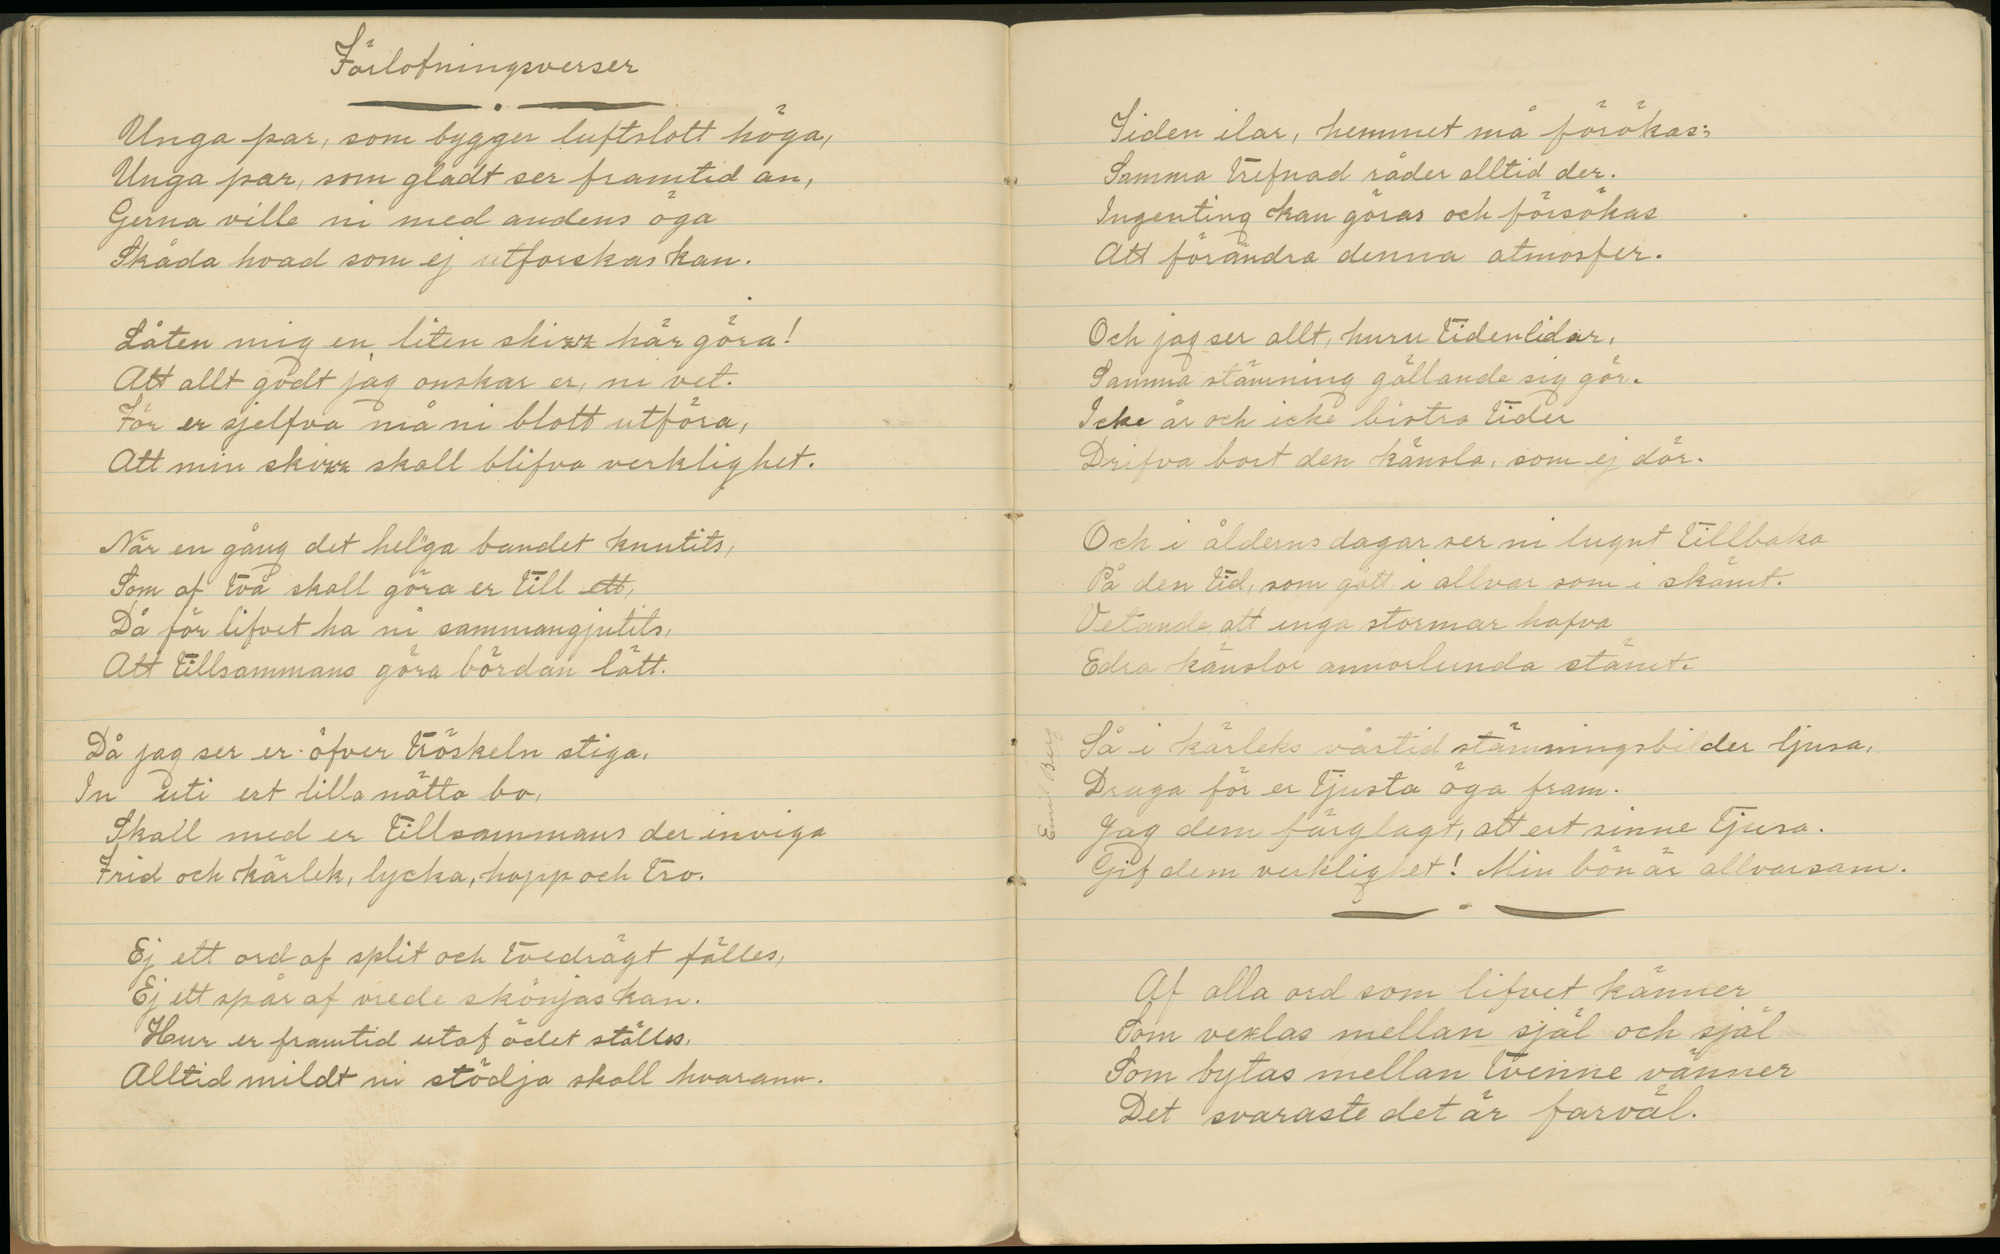 Förlofningsverser
Unga par, som bygger luftslott höga,
Unga par, som gladt ser framtid an,
Gerna ville ni med andens öga
Skåda hvad som ej utforskas kan.
Låten mig en liten skizz här göra!
Att allt godt jag önskar er, ni vet.
För er sjelfva må ni blott utföra,
Att min skizz skall blifva verklighet.
När en gång det hel'ga bandet knutits,
Som af två skall göra er till ett,
Då för lifvet ha ni sammangjutits,
Att tillsammans göra bördan lätt.
Då jag ser er öfver tröskeln stiga,
In uti ert lilla nätta bo,
Skall med er tillsammans der inviga
Frid och kärlek, lycka, hopp och tro.
Ej ett ord af split och tvedrägt fälles,
Ej ett spår af vrede skönjas kan.
Hur er framtid utaf ödet ställes,
Alltid mildt ni stödja skall hvarann.
Tiden ilar, hemmet må förökas;
Samma trefnad råder alltid der.
Ingenting kan göras och försökas
Att förändra denna atmosfer.
Och jag ser allt, huru tiden lidar,
Samma stämning gällande sig gör.
Icke år och icke bistra tider
Drifva bort den känsla, som ej dör.
Och i ålderns dagar ser ni lugnt tillbaka
På den tid, som gått i allvar som i skämt.
Vetande, att inga stormar hafva
Edra känslor annorlunda stämt.
Så i kärleks vårtid stämningsbilder ljusa,
Draga för er tjusta öga fram.
Jag dem färglagt, att ert sinne tjusa.
Gif dem verklighet! Min bön är allvarsam.
Emil Berg
Af alla ord som lifvet känner
Som vexlas mellan själ och själ
Som bytas mellan tvenne vänner
Det svåraste det är farväl.